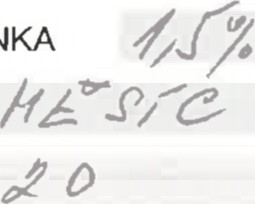 NKA 1,5%
MĚSÍC
20